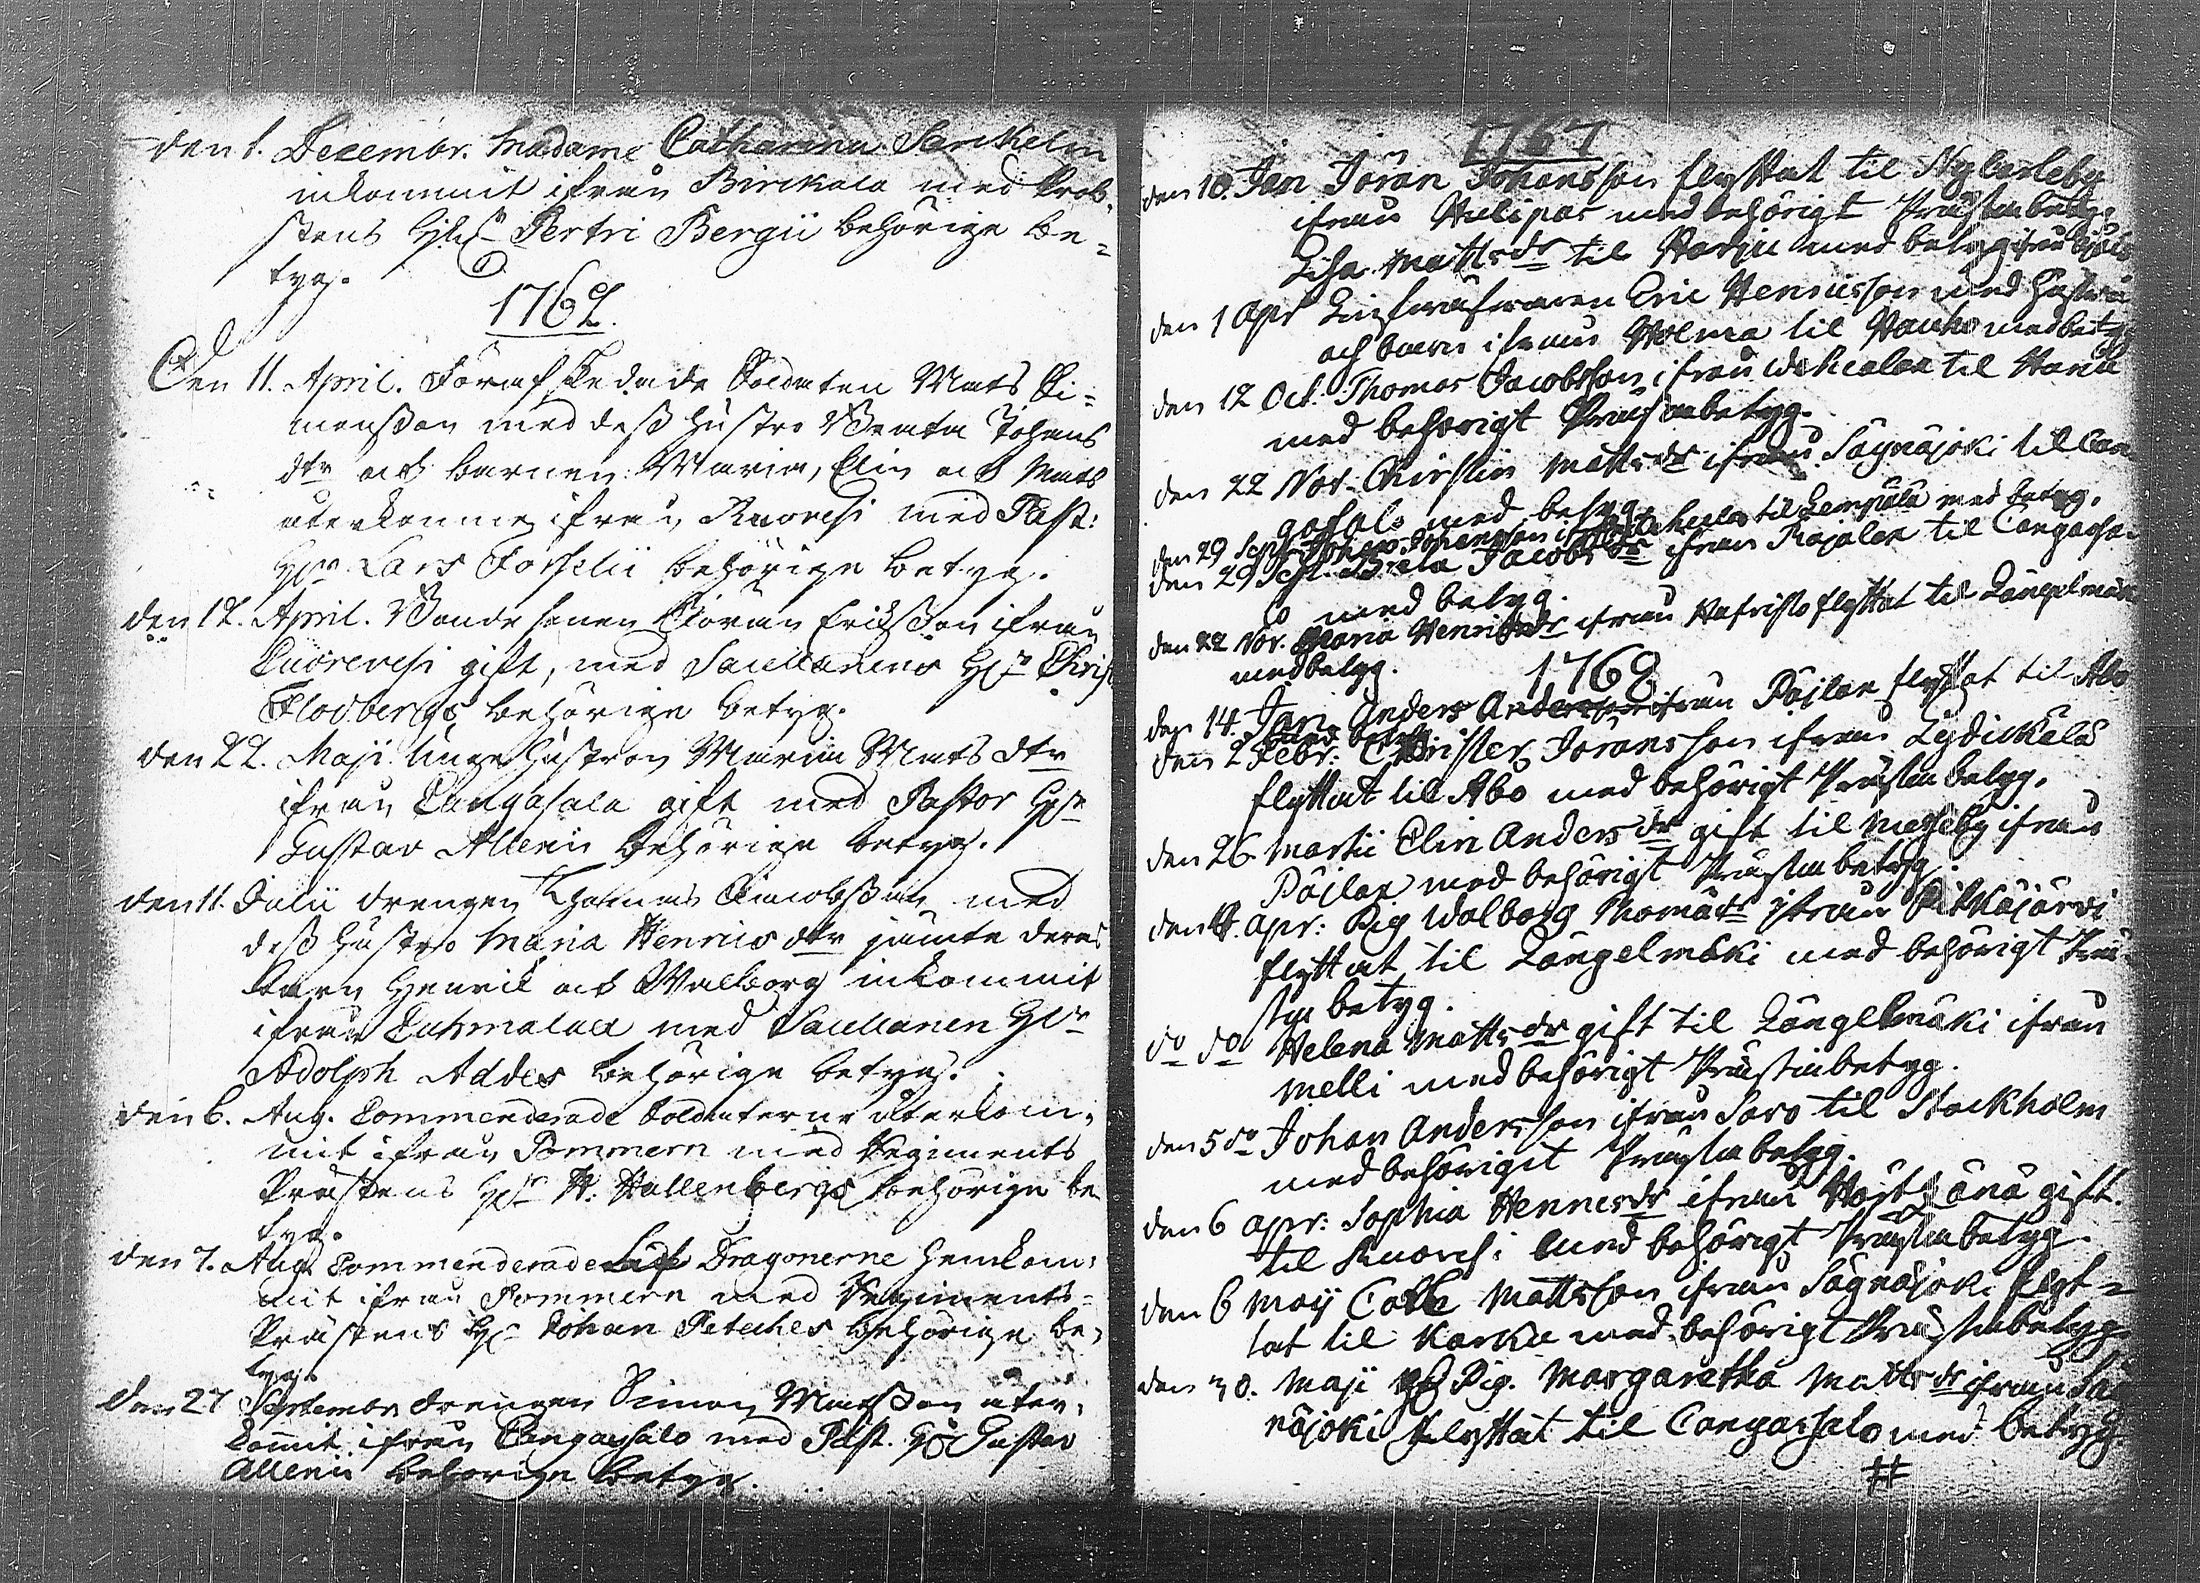 den 1. Decembr. Madame Catharina Senkelin
inkommit ifrån Birckala med Prob-
stens H:r Pertri Bergii behörige be-
tyg.
1762.
Den 11. April. Förafskedade Soldaten Mats Si-
monsson med dess hustro Beata Johans
dtr och barnen Maria, Elin och Mats
återkomne ifrån Ruovesi med Past:
H:r Lars Forselii behörige betyg.
den 12. April. Bondesonen Göran Ericksson ifrån
Kuorevesi gift, med Sacellanens H:r Christ
Flodbergs behörige betyg.
den 22. Maji unga hustron Maria Mats dtr
ifrån Cangasala gift med Pastor H:r
Gustav Allenii behörige betyg.
den 11. Julii drengen Thomas Jacobsson med
dess hustro Maria Henrics dtr jämte deras
barn Henrik och Walborg inkommit
ifrån Kuhmalax med Sacellanen H:r
Adolph Addes behörige betyg.
den 6. Aug. Commenderade Soldaterne återkom-
mit ifrån Pommern med Regiments
Prästens H:r H. Hallenbergs behörige be
tyg.
den 7. Aug. Commenderade Dragonerne hemkom-
mit ifrån Pommern med Regiments-
Prästens H:r Johan Petches behörige be-
tyg.
den 27 Septembr. drengen Simon Matsson åter-
kommit ifrån Cangasalo med Past. H:r Gustav
Allenii behörige betyg.
1767
den 10. Jan Jöran Johansson flyttat til Nycarleby
ifrån Hulipas med behörigt Prästabetyg.
Lisa Matts dr til Harju med betyg ifrån
den 1 Apr Eric Henricsson med hustru
och barn ifrån Holma til Hauho med betyg
den 12 Oct. Thomas Jacobsson ifrån Wehcalax til
med behörigt Prästabetyg.
den 22 Nov. Chirstin Matts dr ifrån Sägnäjoki til Can
gasalo med betyg.
den 29 Sept. Johan Johansson ifrån til Lempälä med betyg.
den 29 Sept. Jacobs dr ifrån Pajalax til Cangasa-
lo med betyg.
den 22 Nov. Maria Henrics dr ifrån flyttat til Längelmäki
med betyg.
1768
den 14. Jan. Anders Andersson ifrån Päjlax flyttat til Åbo
med betyg.
den 2 Febr: Christer Jöransson ifrån Lydickälä
flyttat til Åbo med behörigt Prästabetyg.
den 26 Martii Elin Anders dr gift til Messeby ifrån
Päjlax med behörigt Prästabetyg.
den 4. Apr: Pig Walborg Thomä dr ifrån Pitkäjärvi
flyttat til Längelmäki med behörigt Prä-
sta betyg.
do do Helena Matts dr gift til Längelmäki ifrån
Melli med behörigt Prästabetyg.
den 5 do Johan Andersson ifrån Saro til Stockholm
med behörigit Prästabetyg.
den 6 Apr: Sophia Henrics dr ifrån gift
til Ruovesi med behörigt Prästabetyg.
den 6 Maij Mattsson ifrån Sägnäjoki flyt-
tat til Karku med behörigt Prästabetyg
den 30. Maji Pig. Margaretha Matts dr ifrån Säg
näjoki flyttat til Cangasalo med betyg